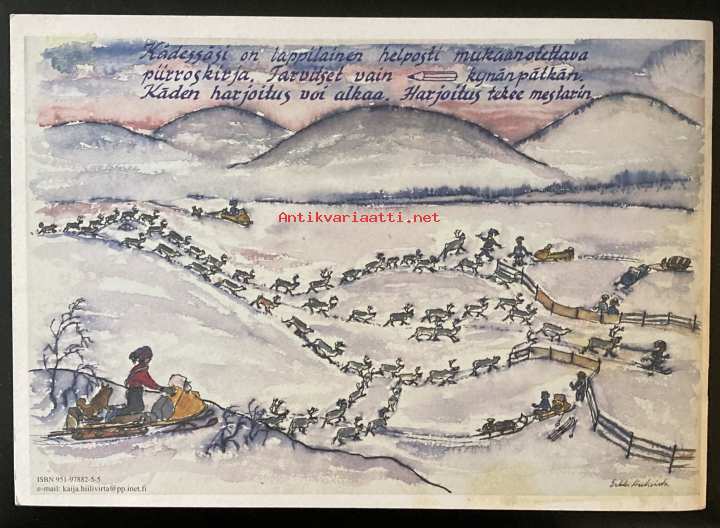 Kädessäsi on lappilainen helposti mukaanotettava
piirroskirja. Tarvitset vain kynänpätkän.
Käden harjoitus voi alkaa. Harjoitus tekee mestarin
Antikvariaatti.net
ISBN 951-97882-5-5
e-mail: kaija.hiilivirta@pp.inet.fi